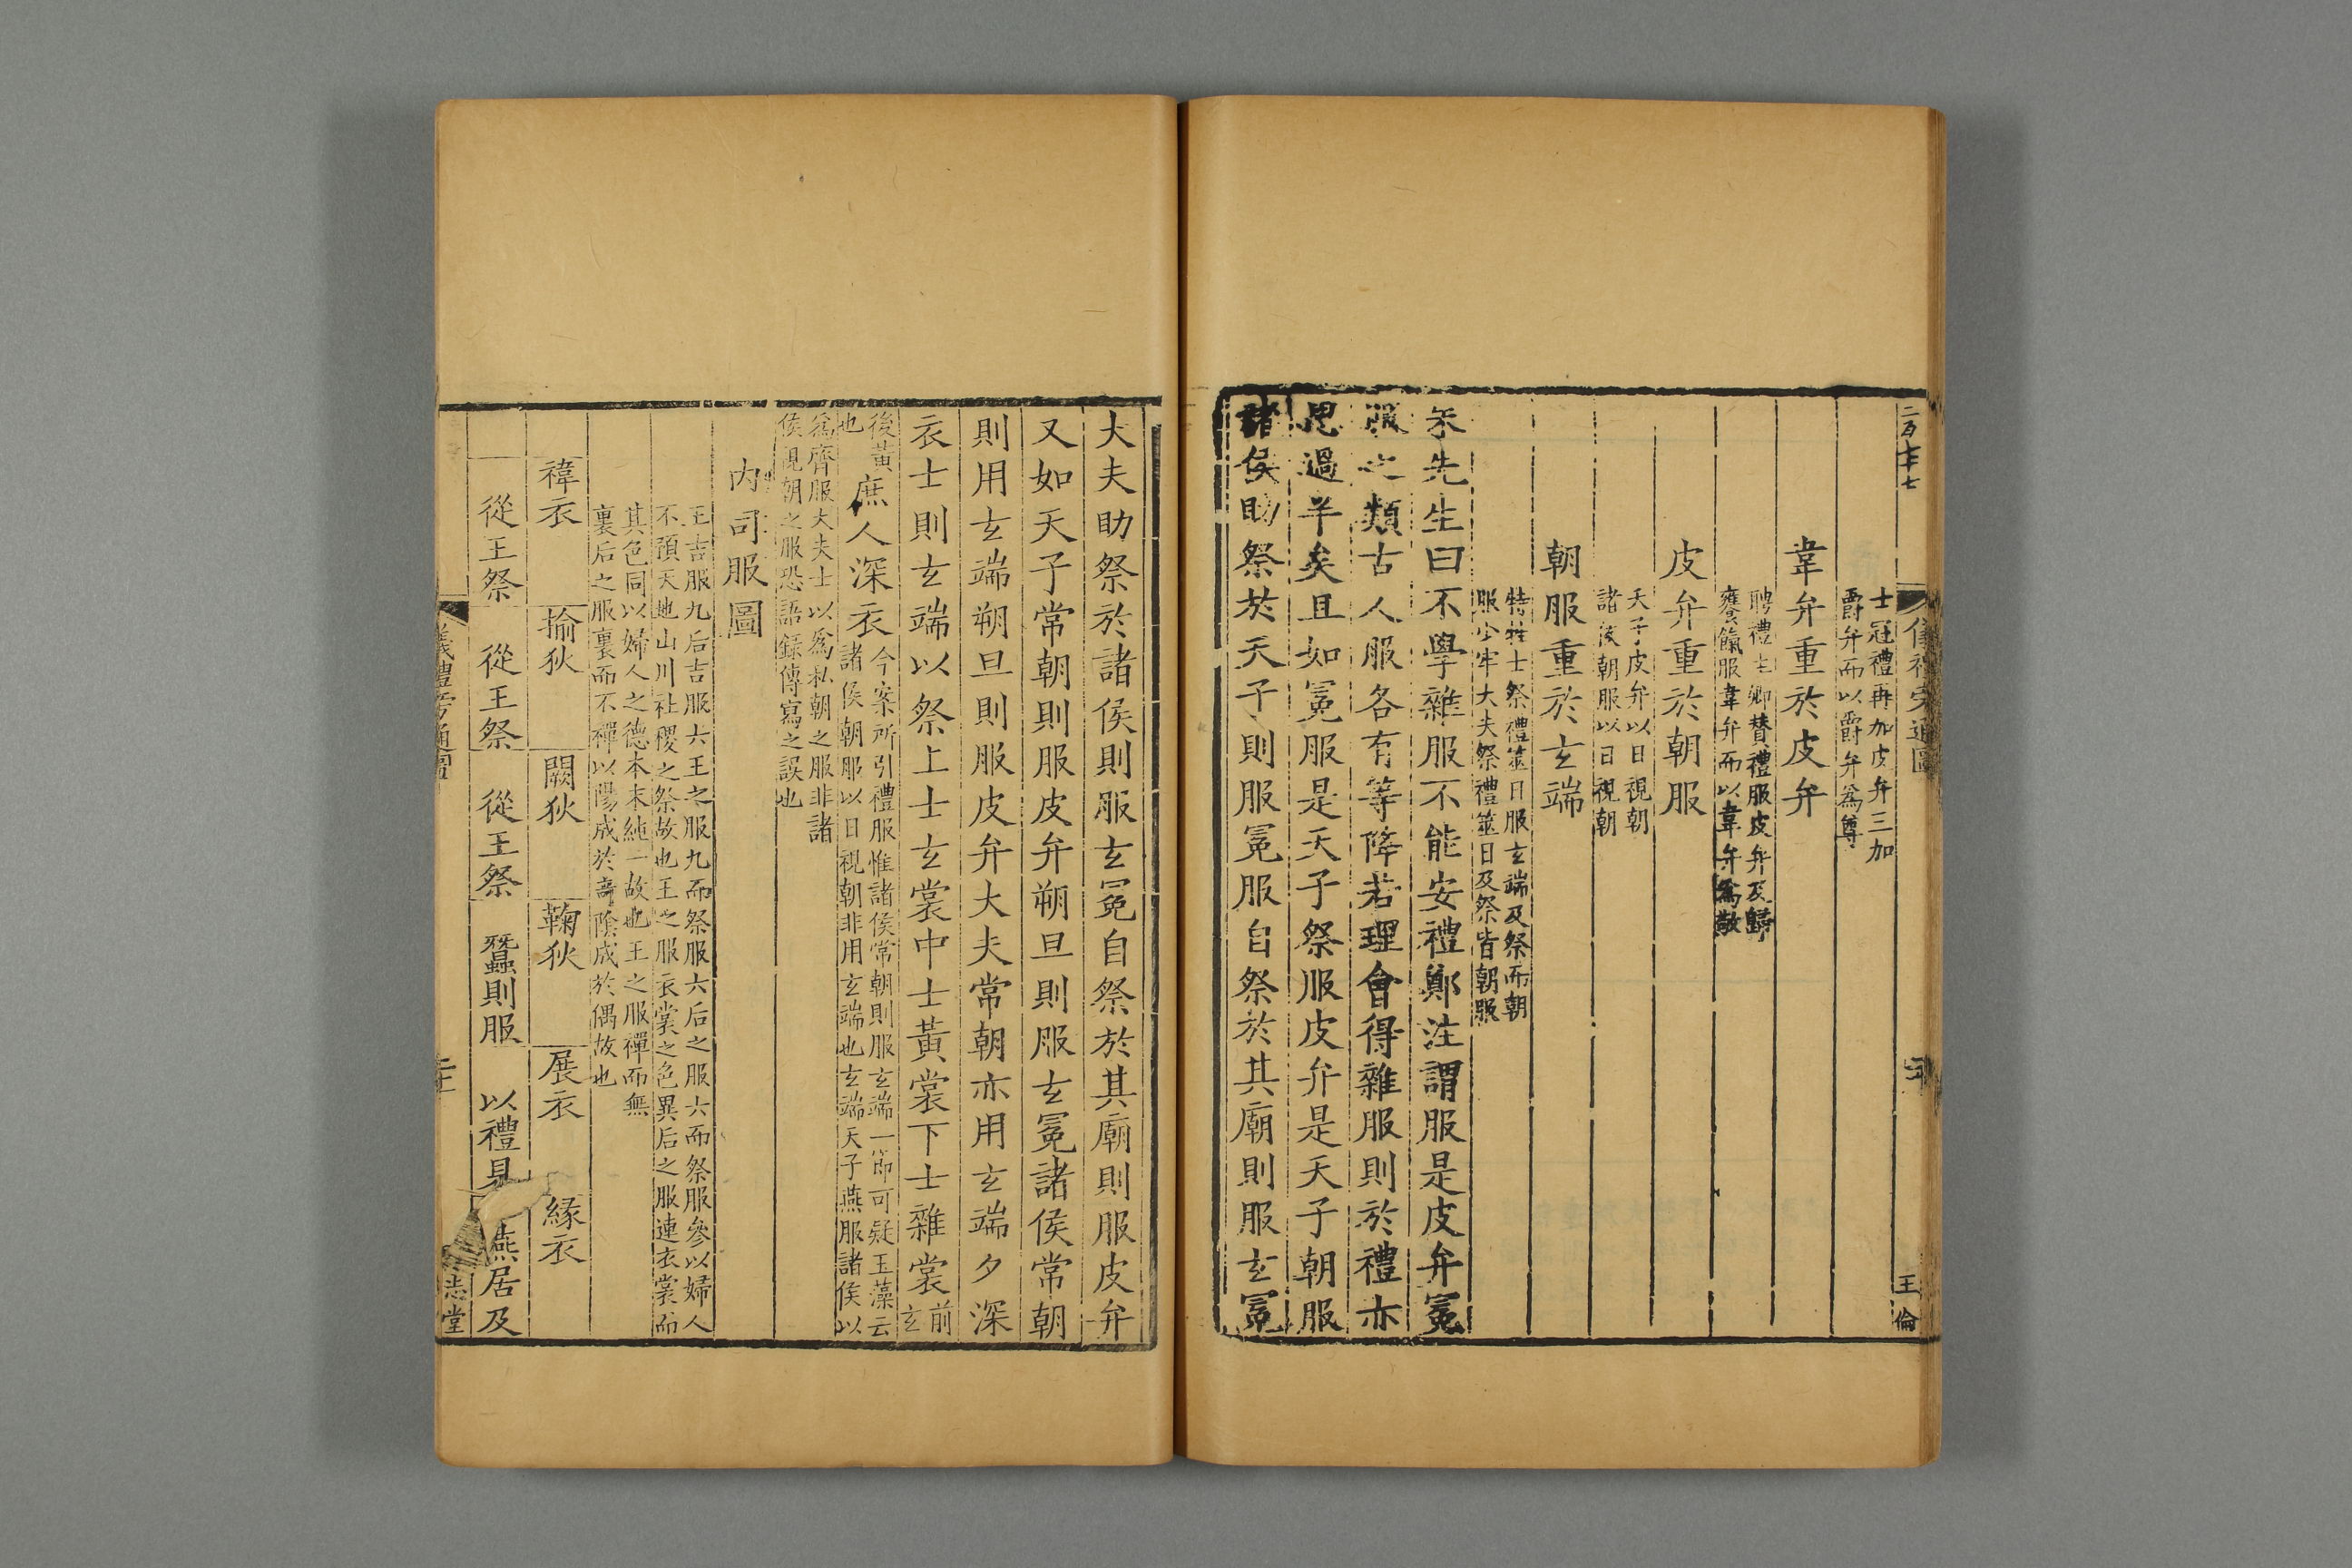 二百七十七
士冠禮再加皮弁三加
爵弁而以爵弁爲尊
韋弁重於皮弁
聘禮主卿贊禮服皮弁及歸
饔餼服韋弁而以韋弁爲敬
皮弁重於朝服
天子皮弁以日視朝
諸侯朝服以日視朝
朝服重於玄端
特牲士祭禮筮日服玄端及祭而朝
服少牢大夫祭禮筮日及祭皆朝服
朱先生曰不學雜服不能安禮鄭注謂服是皮弁冕
服之類古人服各有等降若理會得雜服則於禮亦
思過半矣且如冕服是天子祭服皮弁是天子朝服
諸侯助祭於天子則服冕服自祭於其廟則服玄冕
王倫
大夫助祭於諸侯則服玄冕自祭於其廟則服皮弁
又如天子常朝則服皮弁朔旦則服玄冕諸侯常朝
則用玄端朔旦則服皮弁大夫常朝亦用玄端夕深
衣士則玄端以祭上士玄裳中士黃裳下士雜裳前玄
後黃庶人深衣今案所引禮服惟諸侯常朝則服玄端一節可疑玉藻云
也諸侯朝服以日視朝非用玄端也玄端天子燕服諸侯以
爲齊服大夫士以爲私朝之服非諸
侯視朝之服恐語錄傳寫之誤也
內司服圖
王吉服九后吉服六王之服九而祭服六后之服六而祭服參以婦人
不預天地山川社稷之祭故也王之服衣裳之色異后之服連衣裳而
其色同以婦人之德本末純一故也王之服襌而無
裏后之服裏而不襌以陽成於奇陰成於偶故也
褘衣 揄狄 闕狄 鞠狄 展衣 緣衣
從王祭 從王祭 從王祭 蠶則服 以禮見 燕居及
儀禮旁通圖
志堂